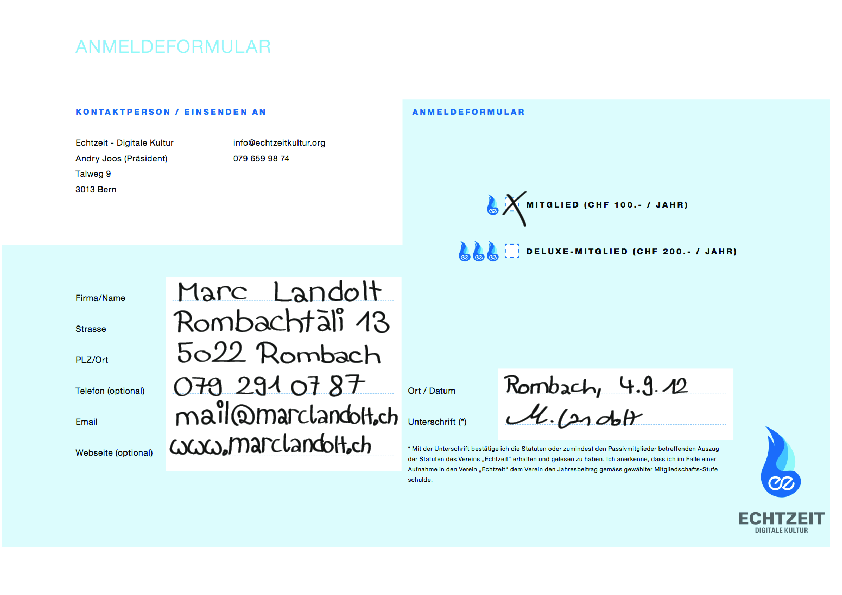 ANMELDEFORMULAR
KONTAKTPERSON / EINSENDEN AN
Echtzeit - Digitale Kultur
Andry Joos (Präsident)
Talweg 9
3013 Bern
info@echtzeitkultur.org
079 659 98 74
ANMELDEFORMULAR
MITGLIED (CHF 100.- / JAHR)
DELUXE-MITGLIED (CHF 200.- / JAHR)
Firma/Name Marc Landolt
Strasse Rombachtäli 13
PLZ/Ort 5022 Rombach
Telefon (optional) 079 291 07 87
Email mail@marclandolt.ch
Webseite (optional) www.marclandolt.ch
Ort / Datum Rombach, 4.9.12
Unterschrift (*) M. Landolt
* Mit der Unterschrift bestätige ich die Statuten oder zumindest den Passivmitglieder betreffenden Auszug
der Statuten des Vereins „Echtzeit" erhalten und gelesen zu haben. Ich anerkenne, dass ich im Falle einer
Aufnahme in den Verein „Echtzeit" dem Verein den Jahresbeitrag gemäss gewählter Mitgliedschafts-Stufe
schulde.
ECHTZEIT
DIGITALE KULTUR